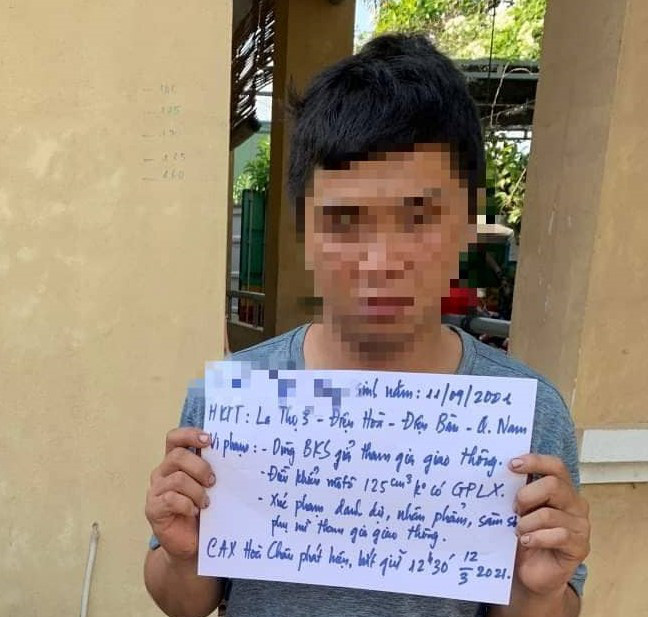 185
175
165
160
Sinh năm: 11/09/2001
HKTT: La Thọ 3 - Điện Hoà - Điện Bàn - Q. Nam
Vi phạm: - Dùng BKS giả tham gia giao thông.
- Điều khiển môtô 125 cm³ ko có GPLX.
- Xúc phạm danh dự, nhân phẩm, sàm sỡ
phụ nữ tham gia giao thông.
CAX Hoà Châu phát hiện, bắt giữ 12h30' 12/3 2021.